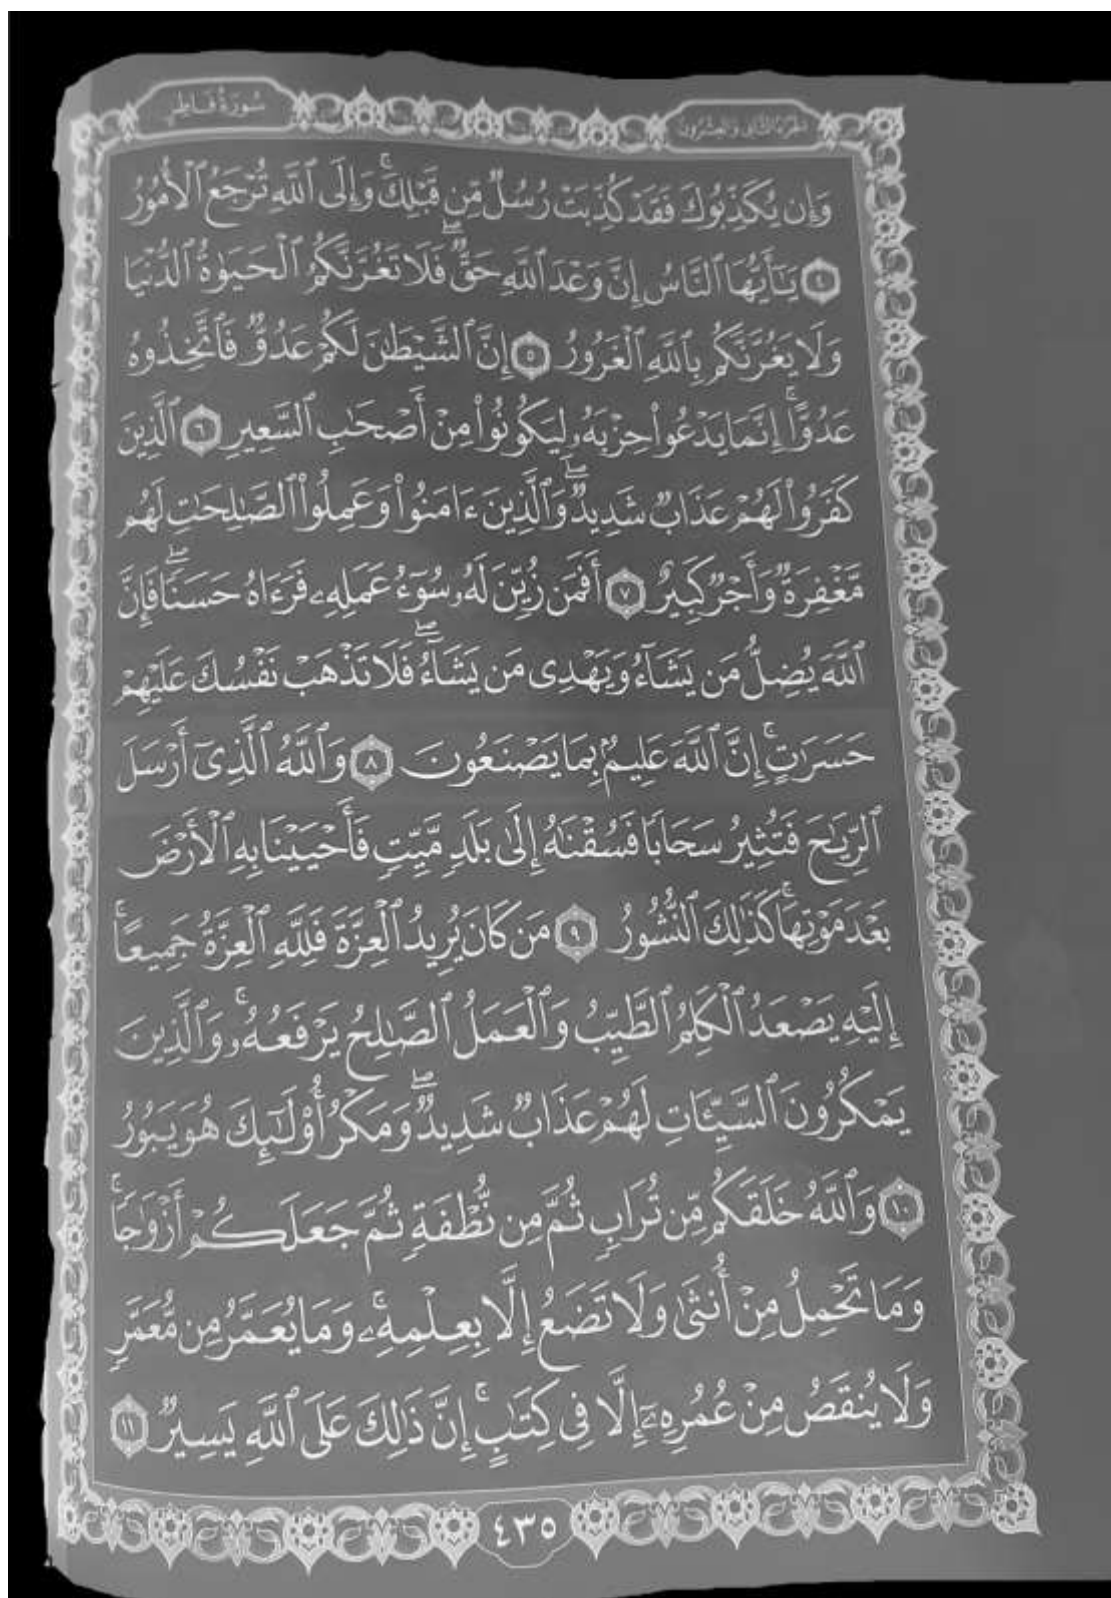 سُورَةُ فَاطِرٍ
الجُزْءُ الثَّانِي وَالعِشْرُونَ
وَإِن يُكَذِّبُوكَ فَقَدْ كُذِّبَتْ رُسُلٌ مِّن قَبْلِكَۚ وَإِلَى ٱللَّهِ تُرْجَعُ ٱلْأُمُورُ
٤ يَـٰٓأَيُّهَا ٱلنَّاسُ إِنَّ وَعْدَ ٱللَّهِ حَقٌّۖ فَلَا تَغُرَّنَّكُمُ ٱلْحَيَوٰةُ ٱلدُّنْيَا
وَلَا يَغُرَّنَّكُم بِٱللَّهِ ٱلْغَرُورُ ٥ إِنَّ ٱلشَّيْطَـٰنَ لَكُمْ عَدُوٌّ فَٱتَّخِذُوهُ
عَدُوًّاۚ إِنَّمَا يَدْعُوا۟ حِزْبَهُۥ لِيَكُونُوا۟ مِنْ أَصْحَـٰبِ ٱلسَّعِيرِ ٦ ٱلَّذِينَ
كَفَرُوا۟ لَهُمْ عَذَابٌ شَدِيدٌۖ وَٱلَّذِينَ ءَامَنُوا۟ وَعَمِلُوا۟ ٱلصَّـٰلِحَـٰتِ لَهُم
مَّغْفِرَةٌ وَأَجْرٌ كَبِيرٌ ٧ أَفَمَن زُيِّنَ لَهُۥ سُوٓءُ عَمَلِهِۦ فَرَءَاهُ حَسَنًاۖ فَإِنَّ
ٱللَّهَ يُضِلُّ مَن يَشَآءُ وَيَهْدِى مَن يَشَآءُۖ فَلَا تَذْهَبْ نَفْسُكَ عَلَيْهِمْ
حَسَرَٰتٍۚ إِنَّ ٱللَّهَ عَلِيمٌۢ بِمَا يَصْنَعُونَ ٨ وَٱللَّهُ ٱلَّذِىٓ أَرْسَلَ
ٱلرِّيَـٰحَ فَتُثِيرُ سَحَابًا فَسُقْنَـٰهُ إِلَىٰ بَلَدٍ مَّيِّتٍ فَأَحْيَيْنَا بِهِ ٱلْأَرْضَ
بَعْدَ مَوْتِهَاۚ كَذَٰلِكَ ٱلنُّشُورُ ٩ مَن كَانَ يُرِيدُ ٱلْعِزَّةَ فَلِلَّهِ ٱلْعِزَّةُ جَمِيعًاۚ
إِلَيْهِ يَصْعَدُ ٱلْكَلِمُ ٱلطَّيِّبُ وَٱلْعَمَلُ ٱلصَّـٰلِحُ يَرْفَعُهُۥۚ وَٱلَّذِينَ
يَمْكُرُونَ ٱلسَّيِّـَٔاتِ لَهُمْ عَذَابٌ شَدِيدٌۖ وَمَكْرُ أُو۟لَـٰٓئِكَ هُوَ يَبُورُ
١٠ وَٱللَّهُ خَلَقَكُم مِّن تُرَابٍ ثُمَّ مِن نُّطْفَةٍ ثُمَّ جَعَلَكُمْ أَزْوَٰجًاۚ
وَمَا تَحْمِلُ مِنْ أُنثَىٰ وَلَا تَضَعُ إِلَّا بِعِلْمِهِۦۚ وَمَا يُعَمَّرُ مِن مُّعَمَّرٍ
وَلَا يُنقَصُ مِنْ عُمُرِهِۦٓ إِلَّا فِى كِتَـٰبٍۚ إِنَّ ذَٰلِكَ عَلَى ٱللَّهِ يَسِيرٌ ١١
٤٣٥